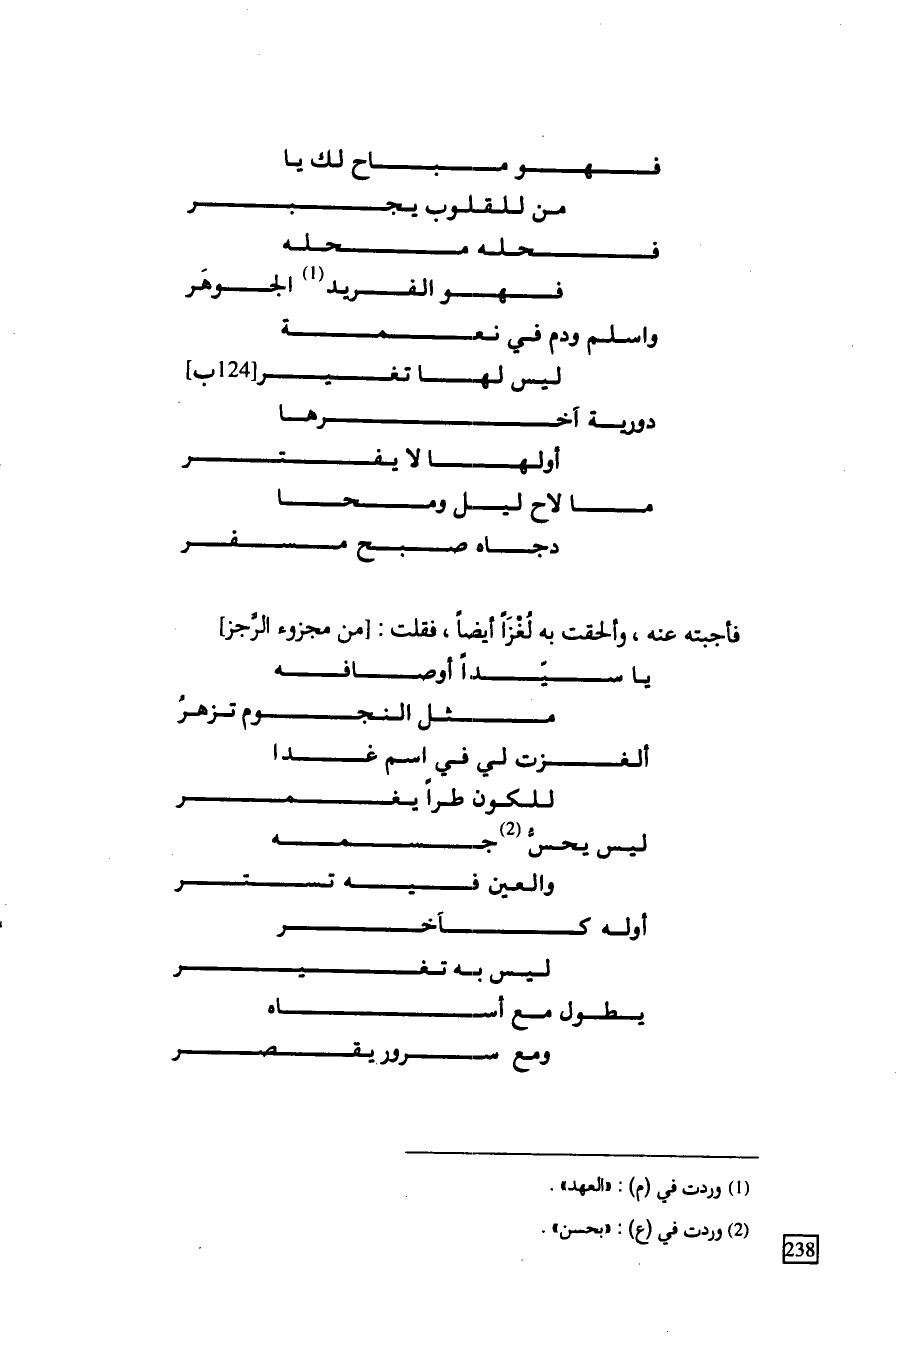 فهو مباح لك يا
من للقلوب يجبر
فحله محله
فهو الفريد(1) الجوهَر
واسلم ودم في نعمة
ليس لها تغير[124ب]
دورية آخرها
أولها لا يفتر
ما لاح ليل ومحا
دجاه صبح مسفر
فأجبته عنه ، وألحقت به لُغْزَاً أيضاً ، فقلت : [من مجزوء الرَّجز]
يا سيّداً أوصافه
مثل النجوم تزهرُ
ألغزت لي في اسم غدا
للكون طراً يغمر
ليس يحسُّ(2) جسمه
والعين فيه تستر
أوله كآخر
ليس به تغير
يطول مع أساه
ومع سرور يقصر
(1) وردت في (م) : «العهد» .
(2) وردت في (ع) : «بحسن» .
238